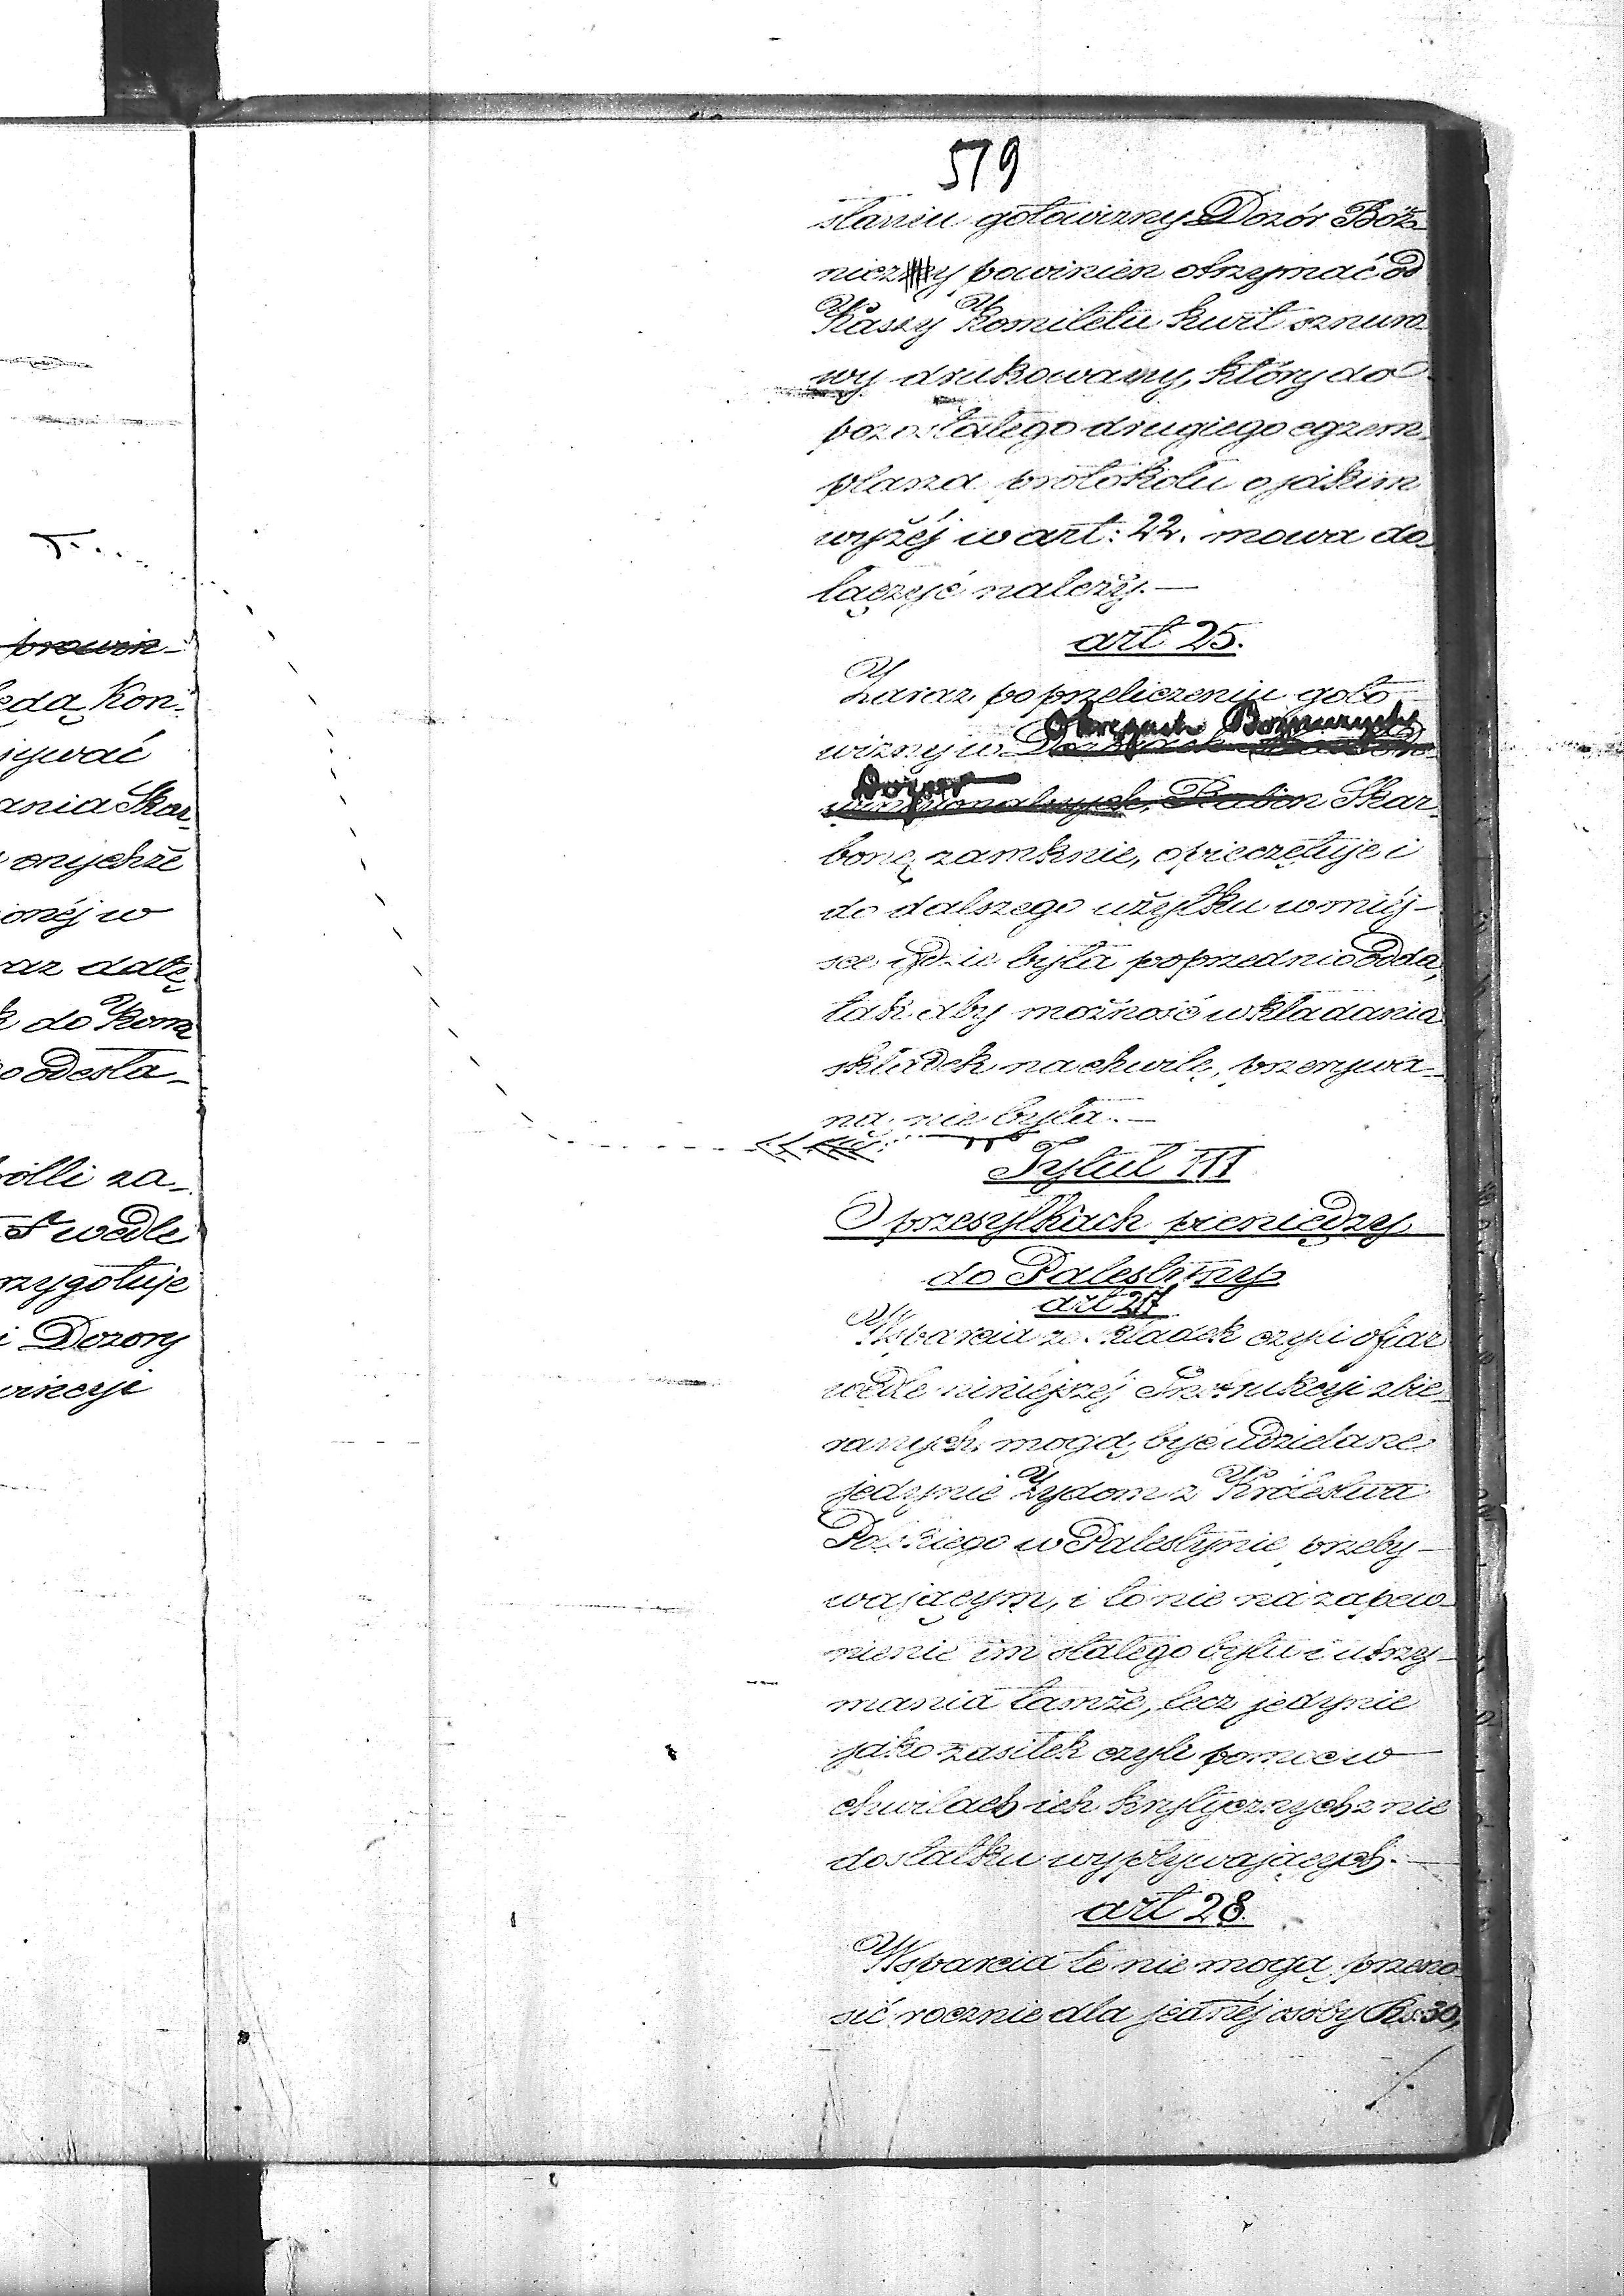 519
słaniu gotowizny Dozór Boż
niczy powinien otrzymać od
Kassy Komitetu kwit sznuro
wy drukowany, który do
pozostałego drugiego egzem
plarza protokołu o jakim
wyżéj w art: 22. mowa do
łączyć należy.—
art 25.
Zaraz po przeliczeniu goto
wizny w Okręgach Bożniczych
Dozór Skar
bonę zamknie, opieczętuje i
do dalszego użytku w miéj-
sce gdzie była poprzednio odda,
tak aby możność wkładania
składek na chwilę, przerywa-
ną nie była.—
Tytuł III
O przesyłkach pieniędzy
do Palestyny
art 27
Wsparcia ze składek czyli ofiar
wedle niniéjszéj Instrukcyi zbie
ranych mogą być udzielane
jedynie Żydom z Królestwa
Polskiego w Palestynie przeby-
wającym, i to nie na zapew-
nienie im stałego bytu i utrzy-
mania tamże, lecz jedynie
jako zasiłek czyli pomoc w
chwilach ich krytycznych z nie
dostatku wypływających.—
art 28.
Wsparcia te nie mogą przeno
sić rocznie dla jednéj osoby Rs. 30,
prowin-
będą Kon-
sywać
ania Skar
onychże
ionéj w
raz datę
k do Kom
odesła-
olli za-
wedle
rzygotuje
i Dozory
wincyi